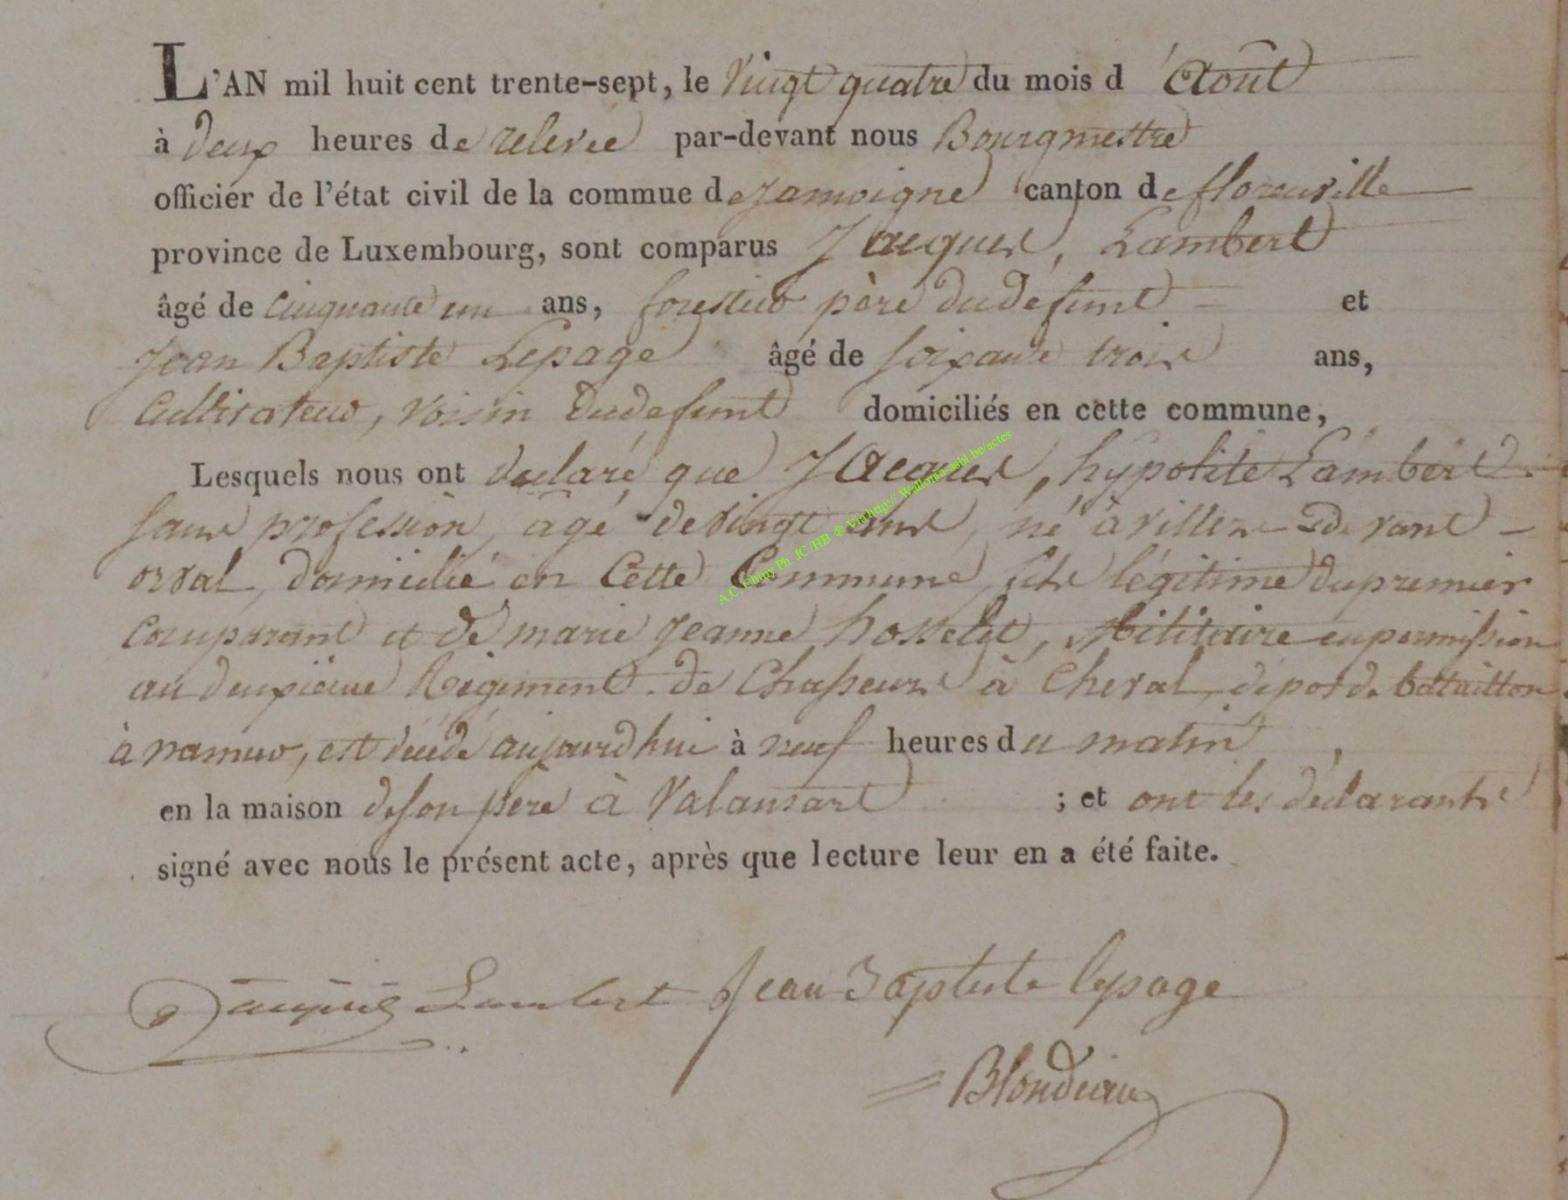 L'AN mil huit cent trente-sept, le Vingt quatre du mois d'Aout
à deux heures de relevée par-devant nous Bourgmestre
officier de l'état civil de la commue de Jamoigne canton de florenville
province de Luxembourg, sont comparus Jacques, Lambert
âgé de Cinquante un ans, forestier père du defunt et
Jean Baptiste Lepage âgé de Soixante trois ans,
Cultivateur, Voisin du defunt domiciliés en cette commune,
Lesquels nous ont déclaré que Jacques, hypolite Lambert
sans profession, agé de vingt ans, né à villers-devant-
orval, domicilié en Cette Commune, fils légitime du premier
Comparant et de marie Jeanne hosselet, Militaire en permission
au deuxième Régiment de Chasseurs à Cheval, depot de battaillon
à namur, est décédé aujourd'hui à neuf heures du matin,
en la maison de son père à Valansart ; et ont les déclarants
signé avec nous le présent acte, après que lecture leur en a été faite.
Jacques Lambert Jean Baptiste lepage
Blondiau